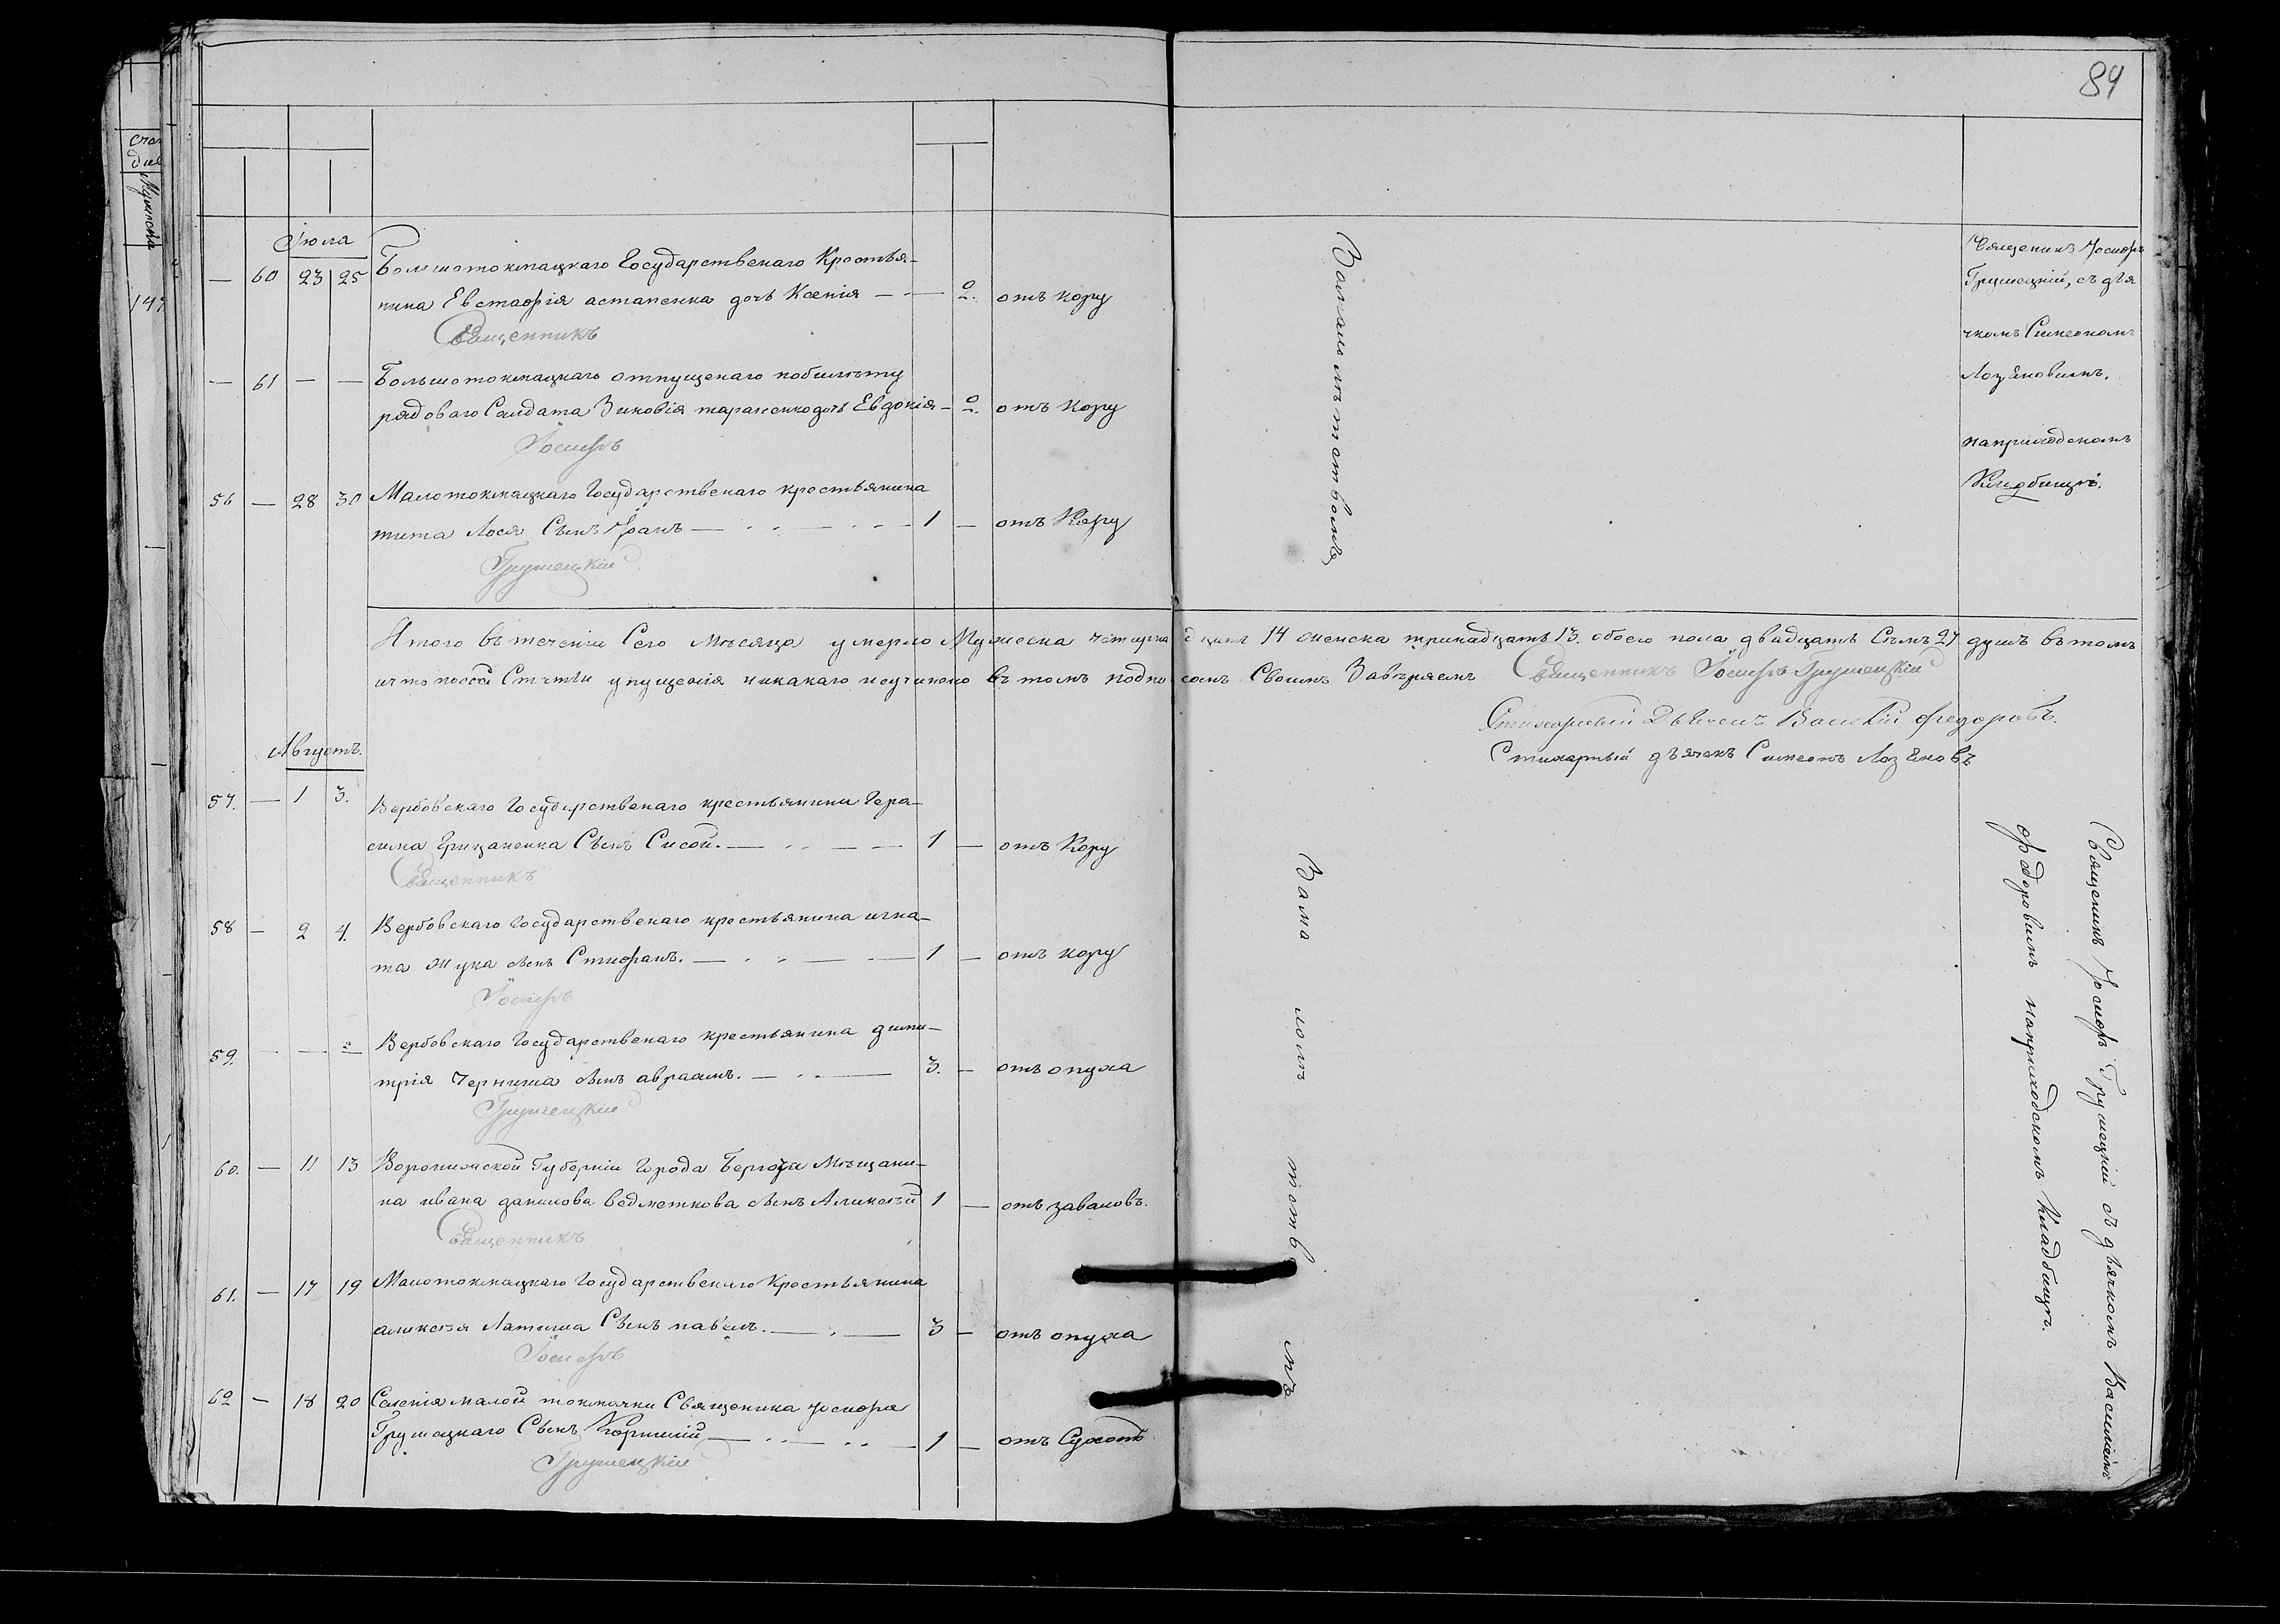 84
Іюля
— 60 23 25 Большотокмацкаго Государственаго Крестья-
нина Евстафія астапенка дочь Ксенія — 2. отъ кору
Священникъ
— 61 — — Большотокмацкаго отпущенаго побилѣту
рядоваго Салдата Зиновія тараненко дочь Евдокія — 2. отъ кору
Іосифъ
56 — 28 30 Малотокмацкаго Государственаго крестьянина
тита Лося Сынъ Іоанъ — 1 — отъ Кору
Грушецкій
Священикъ Іосифъ
Грушецкій, съ дья
чкомъ Симеономъ
Лозяновимъ.
наприходскомъ
Кладбищѣ.
Итого въ теченіи Сего мѣсяца умерло Мужеска четирнадцать 14 женска тринадцать 13. обоего пола двадцать Семъ 27 душъ вътомъ
что посей Статѣи упущенія никакаго неучинено вътомъ подписомъ Своимъ Завѣряемъ Священникъ Іосифъ Грушецкій
Стихарный Дьячекъ Василій Федоровъ.
Стихарный дьячекъ Симеонъ Лозяновъ
Августъ.
57. — 1 3. Вербовскаго Государственаго крестьянина Гера-
сима Грицаненка Сынъ Сисой. — 1 — отъ Кору
Священникъ
58 — 2 4. Вербовскаго Государственаго крестьянина игна-
та Жука сынъ Стифанъ. — 1 — отъ кору
Іосифъ
59 — — Вербовскаго Государственаго крестьянина дими-
трія Черниша сынъ авраамъ. — 3. — отъ опуха
Грушецкій
60. — 11 13 Воронижской Губерніи Города Мѣщани-
на ивана данилова ведметкова сынъ Аликсѣй 1 — отъ заваловъ.
Священникъ
61. — 17 19 Малотокмацкаго Государственаго Крестьянина
аликсѣя Латиша Сынъ павелъ. — 3 — отъ опуха
Іосифъ
62 — 18 20 Селенія малой токмачки Священика Іосифа
Грушецкаго Сынъ Корнилій — 1 — отъ Сухотъ
Грушецкій
Священикъ Іосифъ Грушецкій съ дьячкомъ Василіемъ
Федоровимъ наприходскомъ Кладбищѣ.